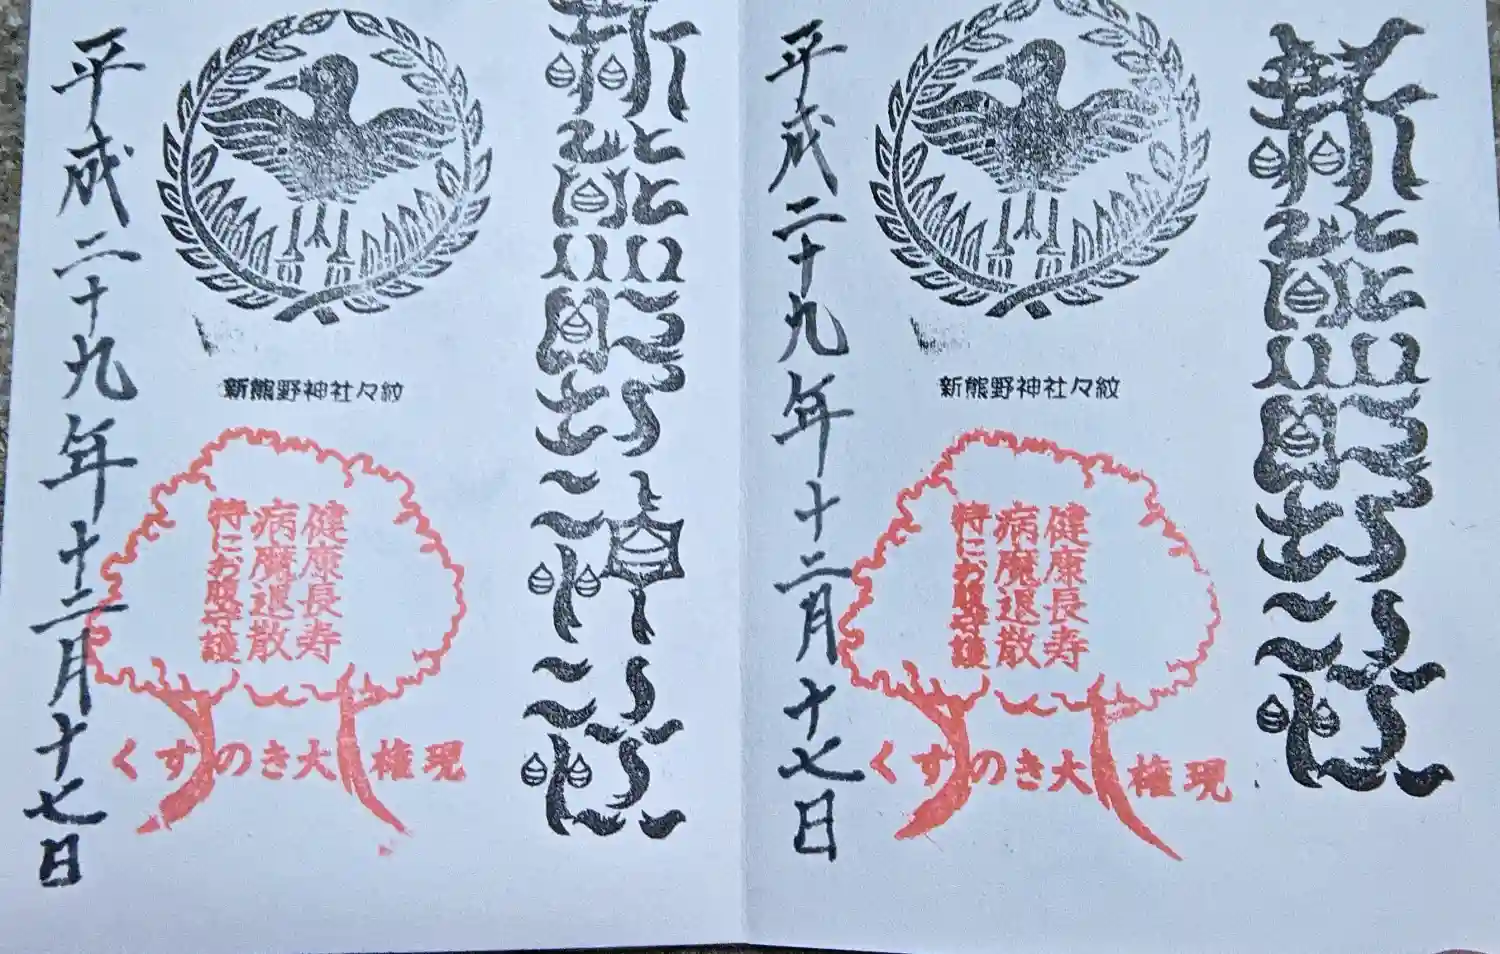 新熊野社
新熊野神社々紋
健康長寿
病魔退散
特にお腹守護
くすのき大権現
平成二十九年十二月十七日
新熊野神社
新熊野神社々紋
健康長寿
病魔退散
特にお腹守護
くすのき大権現
平成二十九年十二月十七日